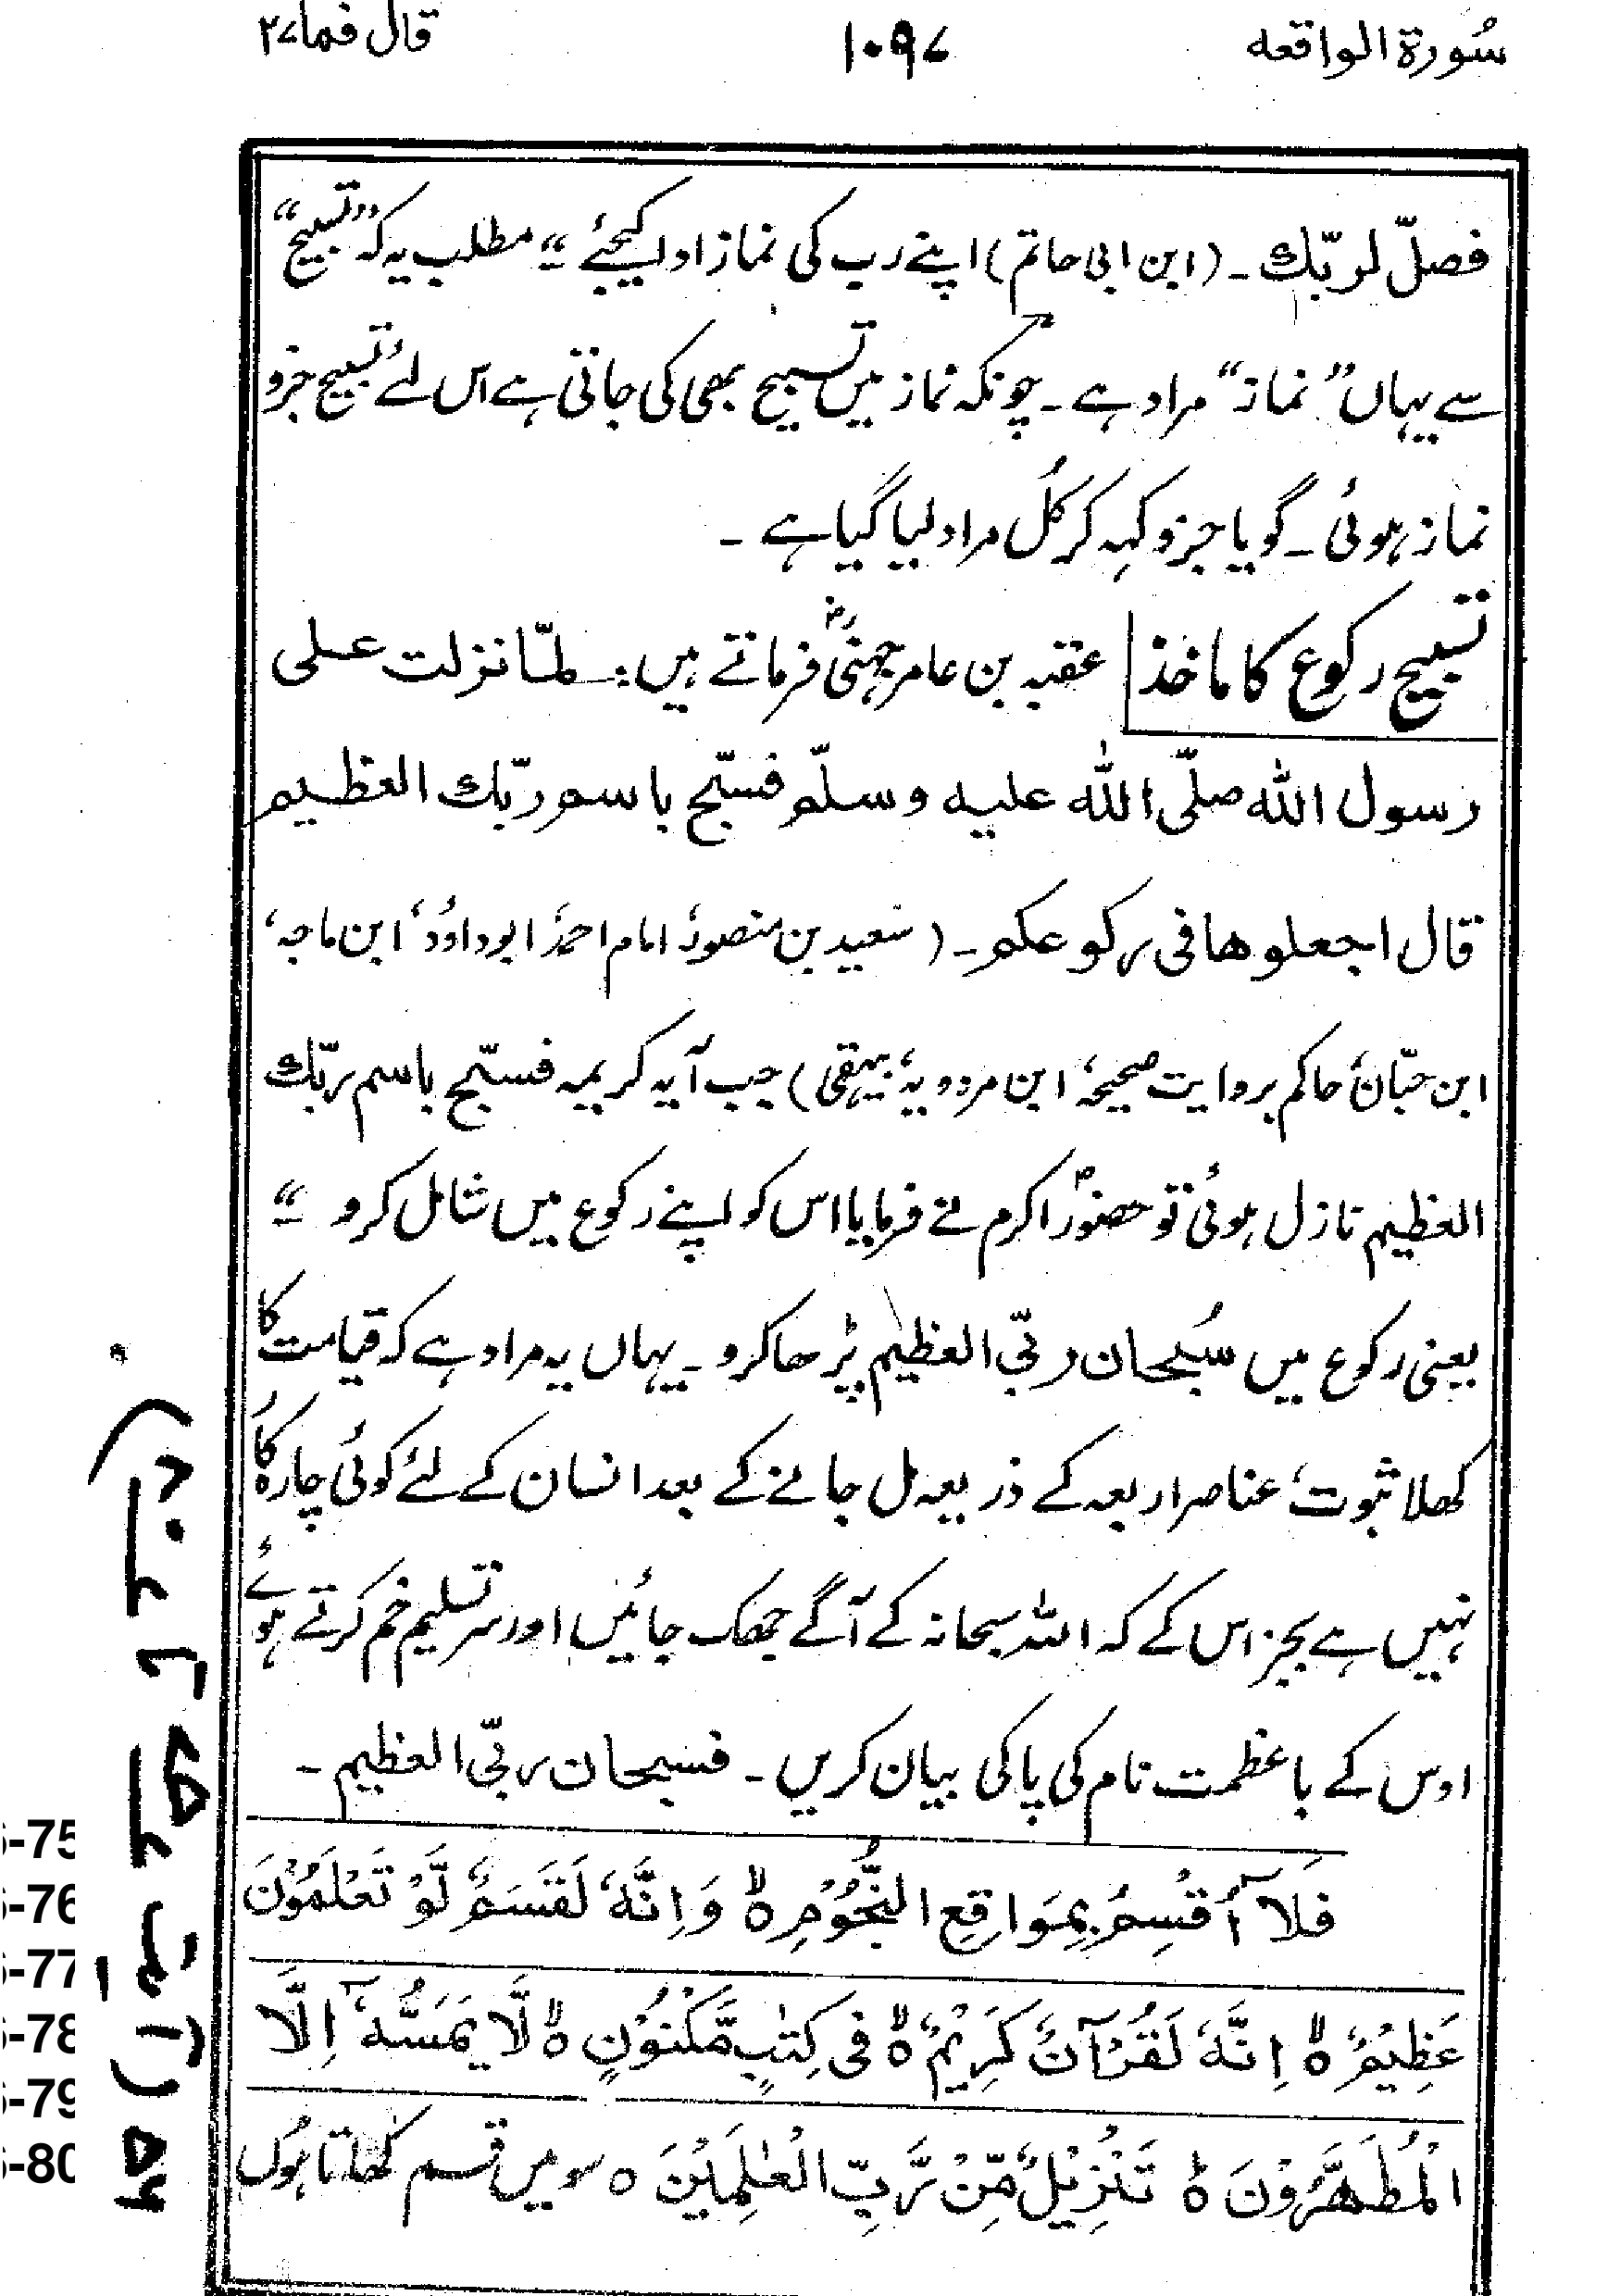 سُورۃ الواقعہ ۱۰۹۷ قال فما ۲۷
فصلّ لربّك ـ (ابن ابی حاتم) اپنے رب کی نماز ادا کیجئے ‘‘ مطلب یہ کہ ’’تسبیح‘‘
سے یہاں ’’نماز‘‘ مراد ہے ۔ چونکہ نماز میں تسبیح بھی کی جاتی ہے اس لئے تسبیح جزو
نماز ہوئی ۔ گویا جزو کہہ کر کُل مراد لیا گیا ہے ۔
تسبیح رکوع کا ماخذ عقبہ بن عامر جہنیؓ فرماتے ہیں : لمّا نزلت علی
رسول اللّٰه صلّی اللّٰه علیه وسلّم فسبّح باسم ربّك العظیم
قال اجعلوها فی رکوعکم ـ (سعید بن منصور، امام احمد، ابوداؤد، ابن ماجہ،
ابن حبّان، حاکم بروایت صحیحہ، ابن مردویہ، بیہقی) جب آیہ کریمہ فسبّح باسم ربّك
العظیم نازل ہوئی تو حضورؐ اکرم نے فرمایا اس کو اپنے رکوع میں شامل کرو ‘‘
یعنی رکوع میں سُبحان ربّی العظیم پڑھا کرو ۔ یہاں یہ مراد ہے کہ قیامت کا
کھلا ثبوت، عناصر اربعہ کے ذریعہ مل جانے کے بعد انسان کے لئے کوئی چارہ کار
نہیں ہے بجز اس کے کہ اللہ سبحانہ کے آگے جھک جائیں اور سر تسلیم خم کرتے ہوئے
اوس کے با عظمت نام کی پاکی بیان کریں ۔ فسبحان ربّی العظیم ۔
فَلَآ اُقْسِمُ بِمَوَاقِعِ النُّجُوْمِ ۙ وَاِنَّهٗ لَقَسَمٌ لَّوْ تَعْلَمُوْنَ
عَظِیْمٌ ۙ اِنَّهٗ لَقُرْآنٌ کَرِیْمٌ ۙ فِی کِتٰبٍ مَّکْنُوْنٍ ۙ لَّا یَمَسُّهٗٓ اِلَّا
الْمُطَهَّرُوْنَ ؕ تَنْزِیْلٌ مِّنْ رَّبِّ الْعٰلَمِیْنَ ○ سو میں قسم کھاتا ہوں
6-75
6-76
6-77
6-78
6-79
6-80